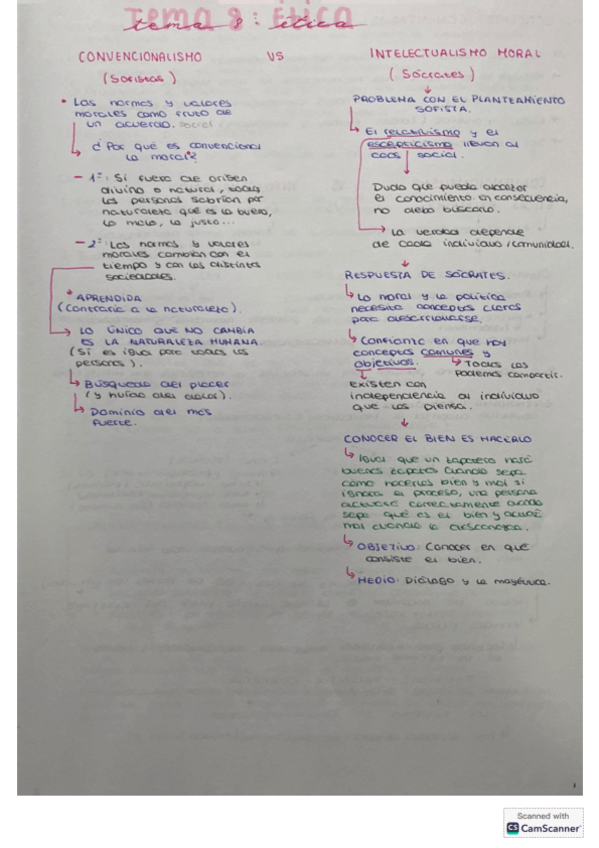 Tema 8: Ética
CONVENCIONALISMO VS INTELECTUALISMO MORAL
(Sofistas)
• Las normas y valores
morales como fruto de
un acuerdo. social
¿Por qué es convencional
la moral?
- 1ª: Si fuera de origen
divino o natural, todas
las personas sabrían por
naturaleza qué es lo bueno,
lo malo, lo justo...
- 2ª: Las normas y valores
morales cambian con el
tiempo y con las distintas
sociedades.
* APRENDIDA
(Contraria a la naturaleza).
LO ÚNICO QUE NO CAMBIA
ES LA NATURALEZA HUMANA.
(Sí es igual para todas las
personas).
Búsqueda del placer
(y huída del dolor).
Dominio del más
fuerte.
(Sócrates)
PROBLEMA CON EL PLANTEAMIENTO
SOFISTA.
El relativismo y el
escepticismo llevan al
caos social.
Duda que pueda alcanzar
el conocimiento. en consecuencia,
no debo buscarlo.
La verdad depende
de cada individuo/comunidad.
RESPUESTA DE SÓCRATES.
La moral y la política
necesita conceptos claros
para
Confianza en que hay
conceptos comunes y
objetivos. Todos los
podemos compartir.
Existen con
independencia al individuo
que los piensa.
CONOCER EL BIEN ES HACERLO
Igual que un zapatero hará
buenos zapatos cuando sepa
cómo hacerlos bien y mal si
ignora el proceso, una persona
actuará correctamente cuando
sepa qué es el bien y actúa
mal cuando lo desconozca.
OBJETIVO: Conocer en qué
consiste el bien.
MEDIO: Diálogo y la mayéutica.
1
Scanned with
CS CamScanner